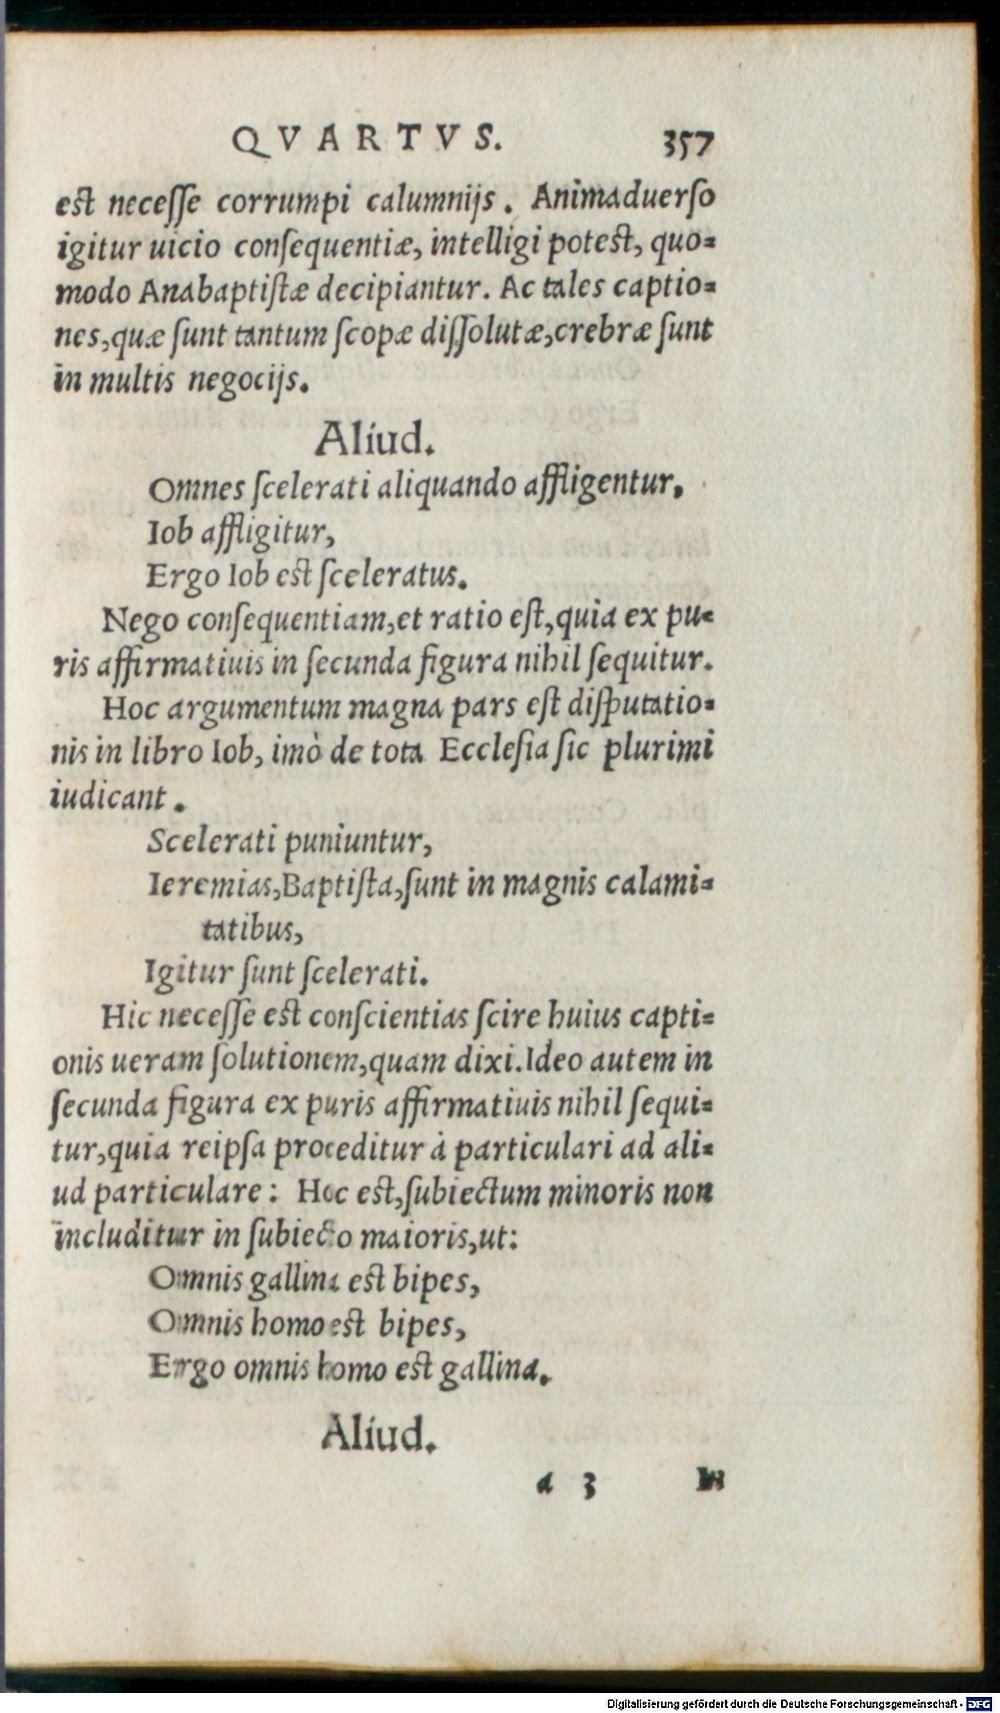 QVARTVS. 357
est necesse corrumpi calumnijs. Animaduerso
igitur uicio consequentiæ, intelligi potest, quo-
modo Anabaptistæ decipiantur. Ac tales captio-
nes, quæ sunt tantum scopæ dissolutæ, crebræ sunt
in multis negocijs.
Aliud.
Omnes scelerati aliquando affligentur.
Iob affligitur,
Ergo Iob est sceleratus.
Nego consequentiam, et ratio est, quia ex pu-
ris affirmatiuis in secunda figura nihil sequitur.
Hoc argumentum magna pars est disputatio-
nis in libro Iob, imò de tota Ecclesia sic plurimi
iudicant.
Scelerati puniuntur,
Ieremias, Baptista, sunt in magnis calami-
tatibus,
Igitur sunt scelerati.
Hic necesse est conscientias scire huius capti-
onis ueram solutionem, quam dixi. Ideo autem in
secunda figura ex puris affirmatiuis nihil sequi-
tur, quia reipsa proceditur à particulari ad ali-
ud particulare: Hoc est, subiectum minoris non
includitur in subiecto maioris, ut:
Omnis gallina est bipes,
Omnis homo est bipes,
Ergo omnis homo est gallina.
Aliud.
a 3 In
Digitalisierung gefördert durch die Deutsche Forschungsgemeinschaft - DFG